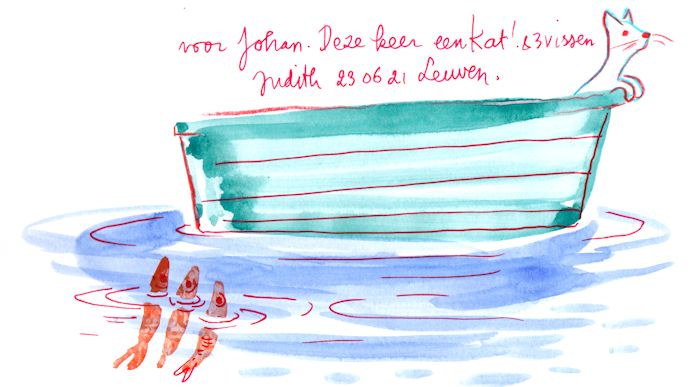 voor Johan. Deze keer een Kat! & 3 vissen
Judith 23 06 21 Leuven.